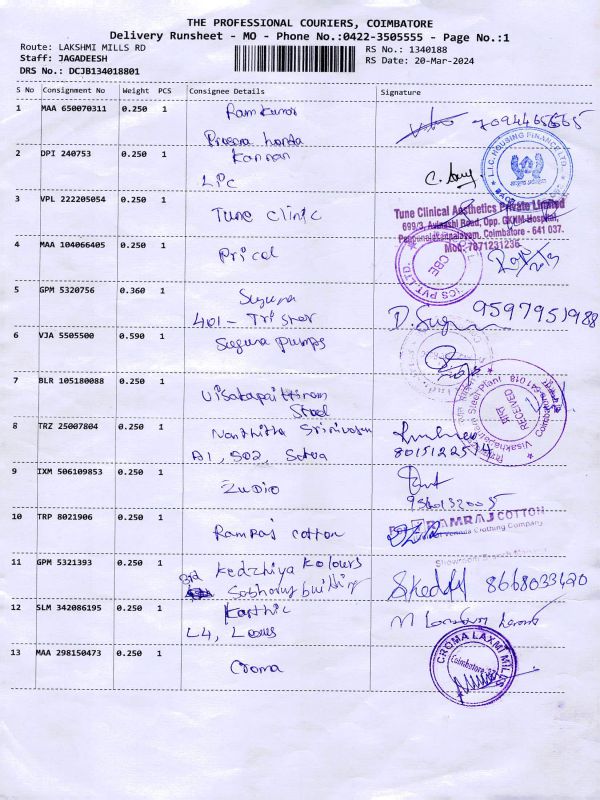 THE PROFESSIONAL COURIERS, COIMBATORE
Delivery Runsheet - MO - Phone No.:0422-3505555 - Page No.:1
Route: LAKSHMI MILLS RD
RS No.: 1340188
Staff: JAGADEESH
RS Date: 20-Mar-2024
DRS No.: DCJB134018801
S No Consignment No Weight PCS Consignee Details Signature
1 MAA 650070311 0.250 1 Ramkumar
Prasana honda
2 DPI 240753 0.250 1 Kannan
LIC
L.I.C. HOUSING FINANCE LTD.
3 VPL 222205054 0.250 1 Tune clinic
Tune Clinical Aesthetics Private Limited
699/3, Avinashi Road, Opp. GKNM-Hospital,
Pappanaickenpalayam, Coimbatore - 641 037.
Mob: 7871231236
4 MAA 104066405 0.250 1 Pricol
CBE
5 GPM 5320756 0.360 1 Suguna
401 - Tristar
D. Sugu 9597951988
6 VJA 5505500 0.590 1 Suguna pumps
7 BLR 105180088 0.250 1 Visakapattinam
Steel
Visakhapatnam Steel Plant
RECEIVED
8 TRZ 25007804 0.250 1 Nanthitha Srinivasan
A1, 502,
9 IXM 506109853 0.250 1 Zudio
10 TRP 8021906 0.250 1 Ramraj cotton
RAMRAJ COTTON
11 GPM 5321393 0.250 1 Kedzhiya Kolours
3rd Sobhony building
8668033420
12 SLM 342086195 0.250 1 Karthic
L4,
13 MAA 298150473 0.250 1 Croma
CROMA LAXMI MILLS
Coimbatore-37